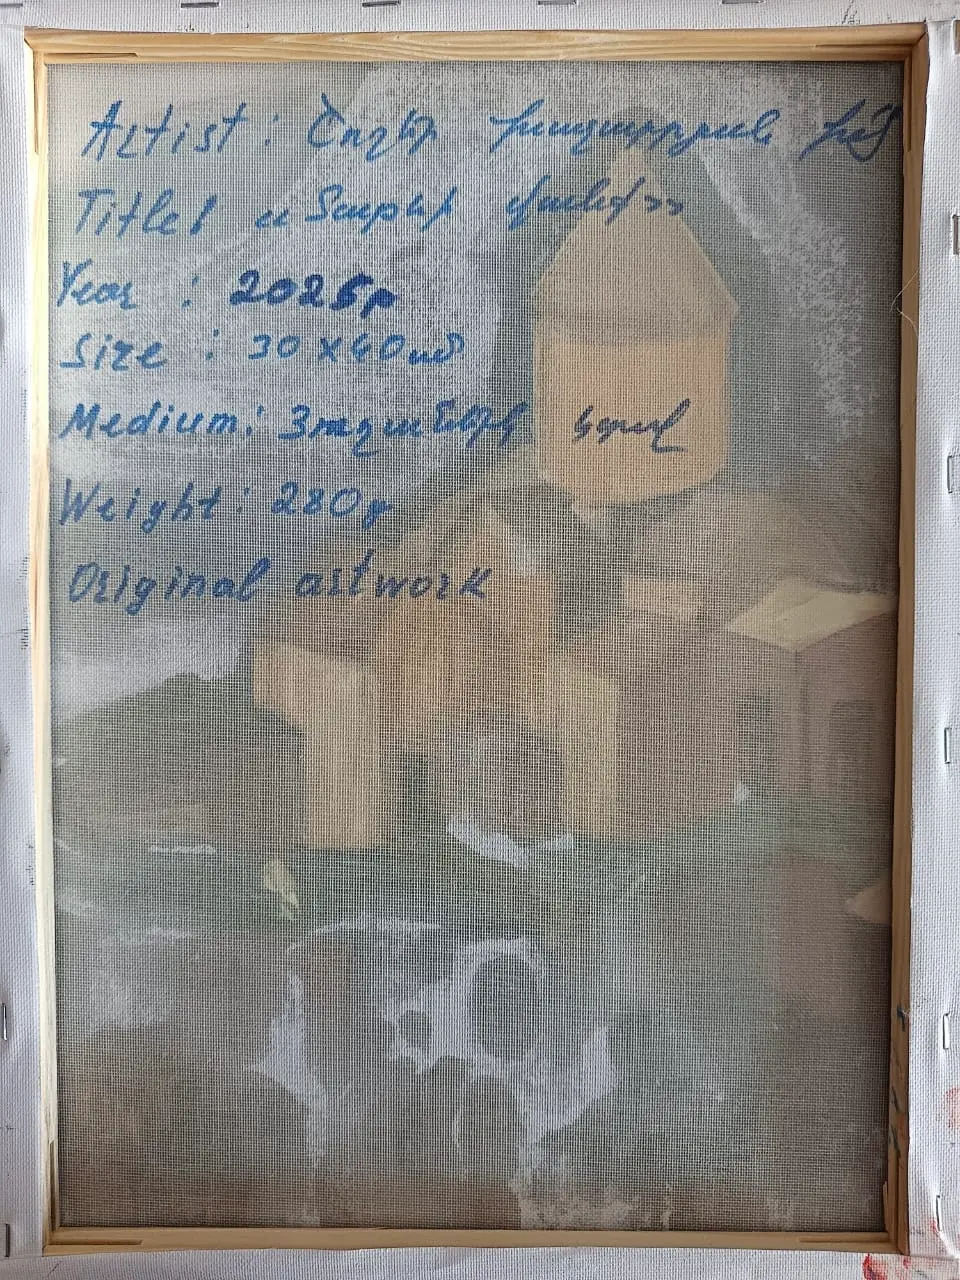 Artist : Շողեր Խաչատրյան
Title: « Տաթևի վանք»
Year : 2025թ
Size : 30x40սմ
Medium: Յուղաներկ կտավ
Weight: 280g
Original artwork